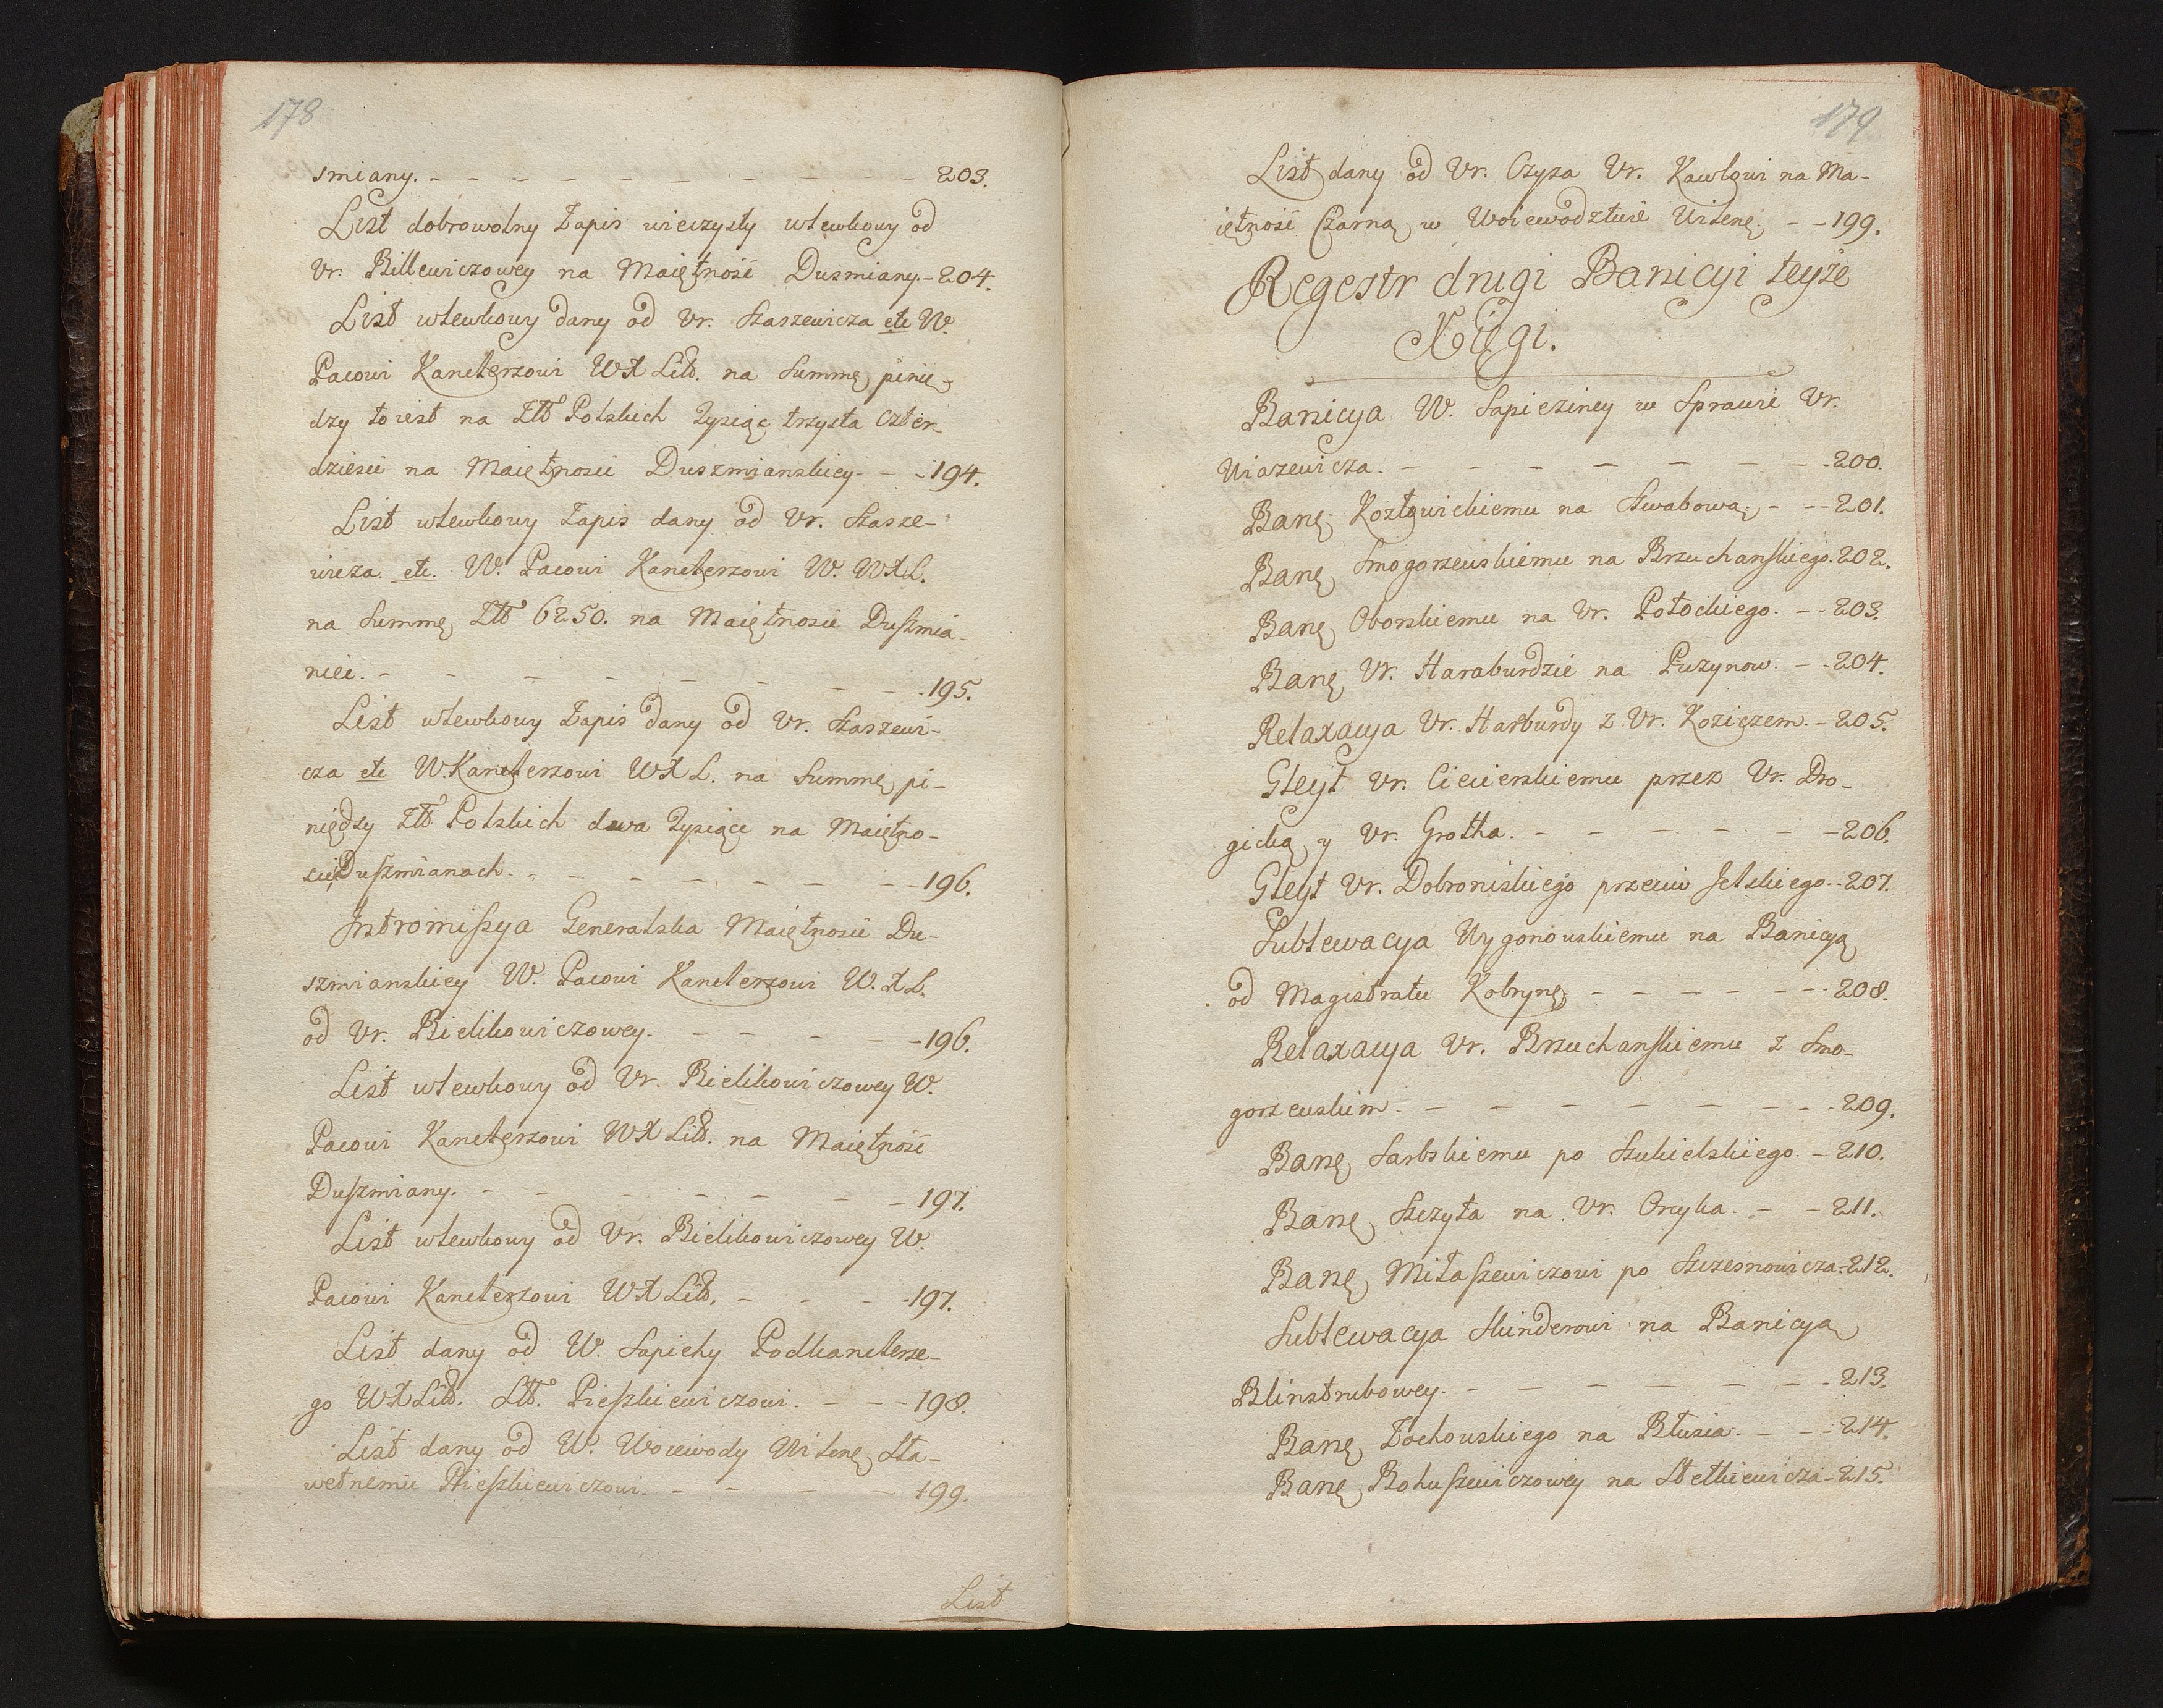 178
smiany. - - - - - - - - 203.
List dobrowolny Zapis wieczysty wlewkowy od
Ur. Billewiczowey na Maiętność Dusmiany. - 204.
List wlewkowy dany od Ur. Staszewicza etc W.
Pacowi Kanclerzowi WXLitt. na Summę pinię-
dzy to iest na Złł Polskich tysiąc trzysta czter-
dziesci na Maiętnosci Duszmianskiey. - - 194.
List wlewkowy Zapis dany od Ur. Stasze-
wicza. etc. W. Pacowi Kanclerzowi W. WXL.
na Summę Złł 6250. na Maiętnosci Duszmia-
nice. - - - - - - - - 195.
List wlewkowy Zapis dany od Ur. Staszewi-
cza etc W. Kanclerzowi WXL. na Summę pi-
niędzy Złł Polskich dwa tysiące na Maiętno-
sci Duszmianach. - - - - - - - 196.
Intromissya Generalska Maiętnosci Du-
szmianskiey W. Pacowi Kanclerzowi W.XL.
od Ur. Bielikowiczowey. - - - - - 196.
List wlewkowy od Ur. Bielikowiczowey W.
Pacowi Kanclerzowi WXLitt. na Maiętność
Duszmiany. - - - - - - - 197.
List wlewkowy od Ur. Bielikowiczowey W.
Pacowi Kanclerzowi WXLitt. - - - - 197.
List dany od W. Sapiehy Podkanclerze-
go WXLitt. Pieszkiewiczowi. - - - 198.
List dany od W. Woiewody Wilenę Sła-
wetnemu Pieszkiewiczowi. - - - - 199.
List
179
List dany od Ur. Czyza Ur. Kawłowi na Ma-
iętność Czarną w Woiewodztwie Wilenę. - - 199.
Regestr drugi Banicyi teyże
Xięgi.
Banicya W. Sapieziney w Sprawie Ur.
Wiazewicza. - - - - - - - 200.
Banę Kozłowickiemu na Szwabową. - - - 201.
Banę Smogorzewskiemu na Brzuchanskiego. 202.
Banę Oborskiemu na Ur. Potockiego. - - 203.
Banę Ur. Haraburdzie na Puzynow. - - 204.
Relaxacya Ur. Harburdy z Ur. Koziczem. - 205.
Gleyt Ur. Ciecierskiemu przez Ur. Dro-
gicką y Ur. Grotha. - - - - - - 206.
Gleyt Ur. Dobroniskiego przeciw Selskiego. - - 207.
Sublewacya Wygonowskiemu na Banicyą
od Magistratu Kobrynę. - - - - - - 208.
Relaxacya Ur. Brzuchanskiemu z Smo-
gorzewskim. - - - - - - - - 209.
Banę Sarbskiemu po Szukielskiego. - 210.
Banę Szczyta na Ur. Orcyka. - - 211.
Banę Miłaszewiczowi po Szczesnowicza. - 212.
Sublewacya Skinderowi na Banicyą
Blinstrubowey. - - - - - - - 213.
Banę Zochowskiego na Błusia. - - - 214.
Banę Bohuszewiczowey na Stetkiewicza - 215.